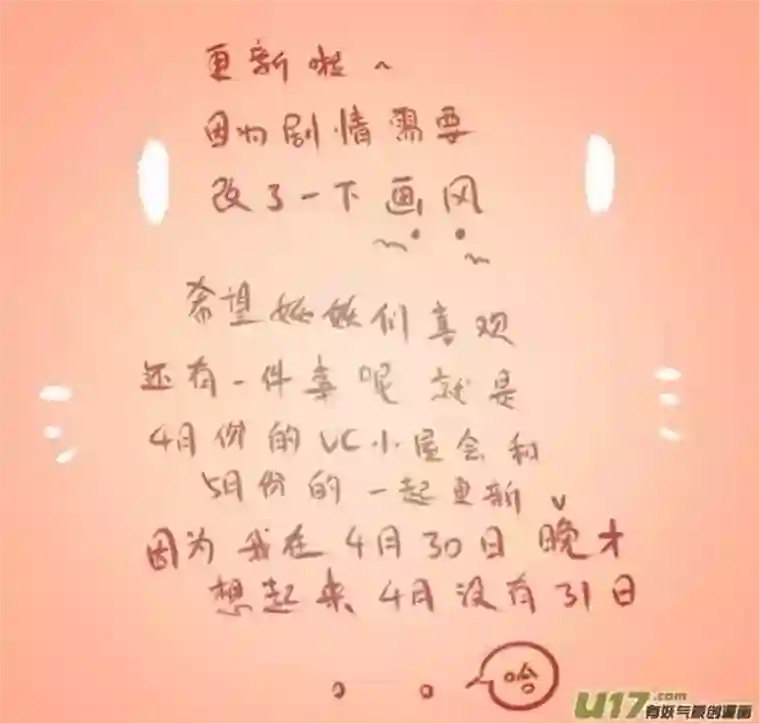 更新啦~
因为剧情需要
改了一下画风
希望妹妹们喜欢
还有一件事呢 就是
4月份的VC小屋会和
5月份的一起更新
因为我在4月30日晚才
想起来4月没有31日
哈
U17.com
有妖气原创漫画